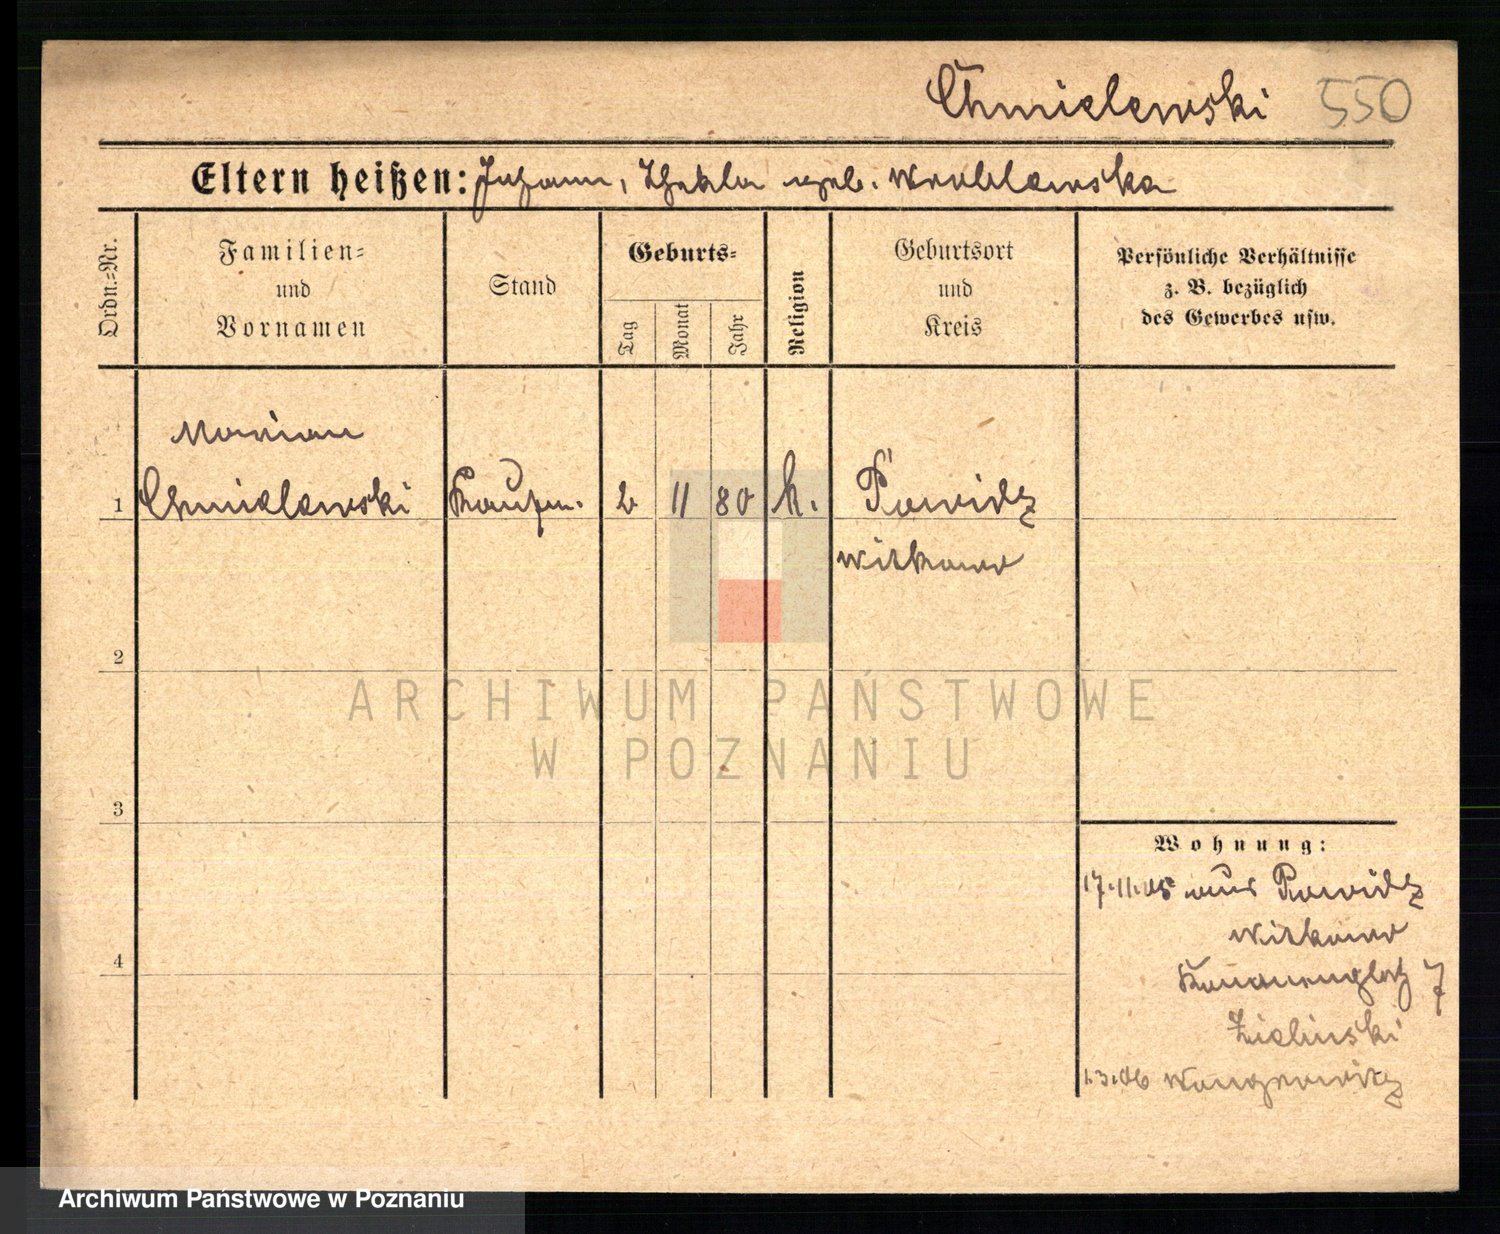 Chmielewski 550
Eltern heißen: Johann, Thekla geb. Wroblewska
Ordn.-Nr.
Familien-
und
Vornamen
Stand
Geburts-
Tag
Monat
Jahr
Religion
Geburtsort
und
Kreis
Persönliche Verhältnisse
z. B. bezüglich
des Gewerbes usw.
Marian
1 Chmielewski Kaufm. 2 11 80 k. Powidz
Witkowo
2
ARCHIWUM PAŃSTWOWE
W POZNANIU
3
Wohnung:
17.11.05 aus Powidz
Witkowo
4
7
Zielinski
1.3.06 Wongrowitz
Archiwum Państwowe w Poznaniu